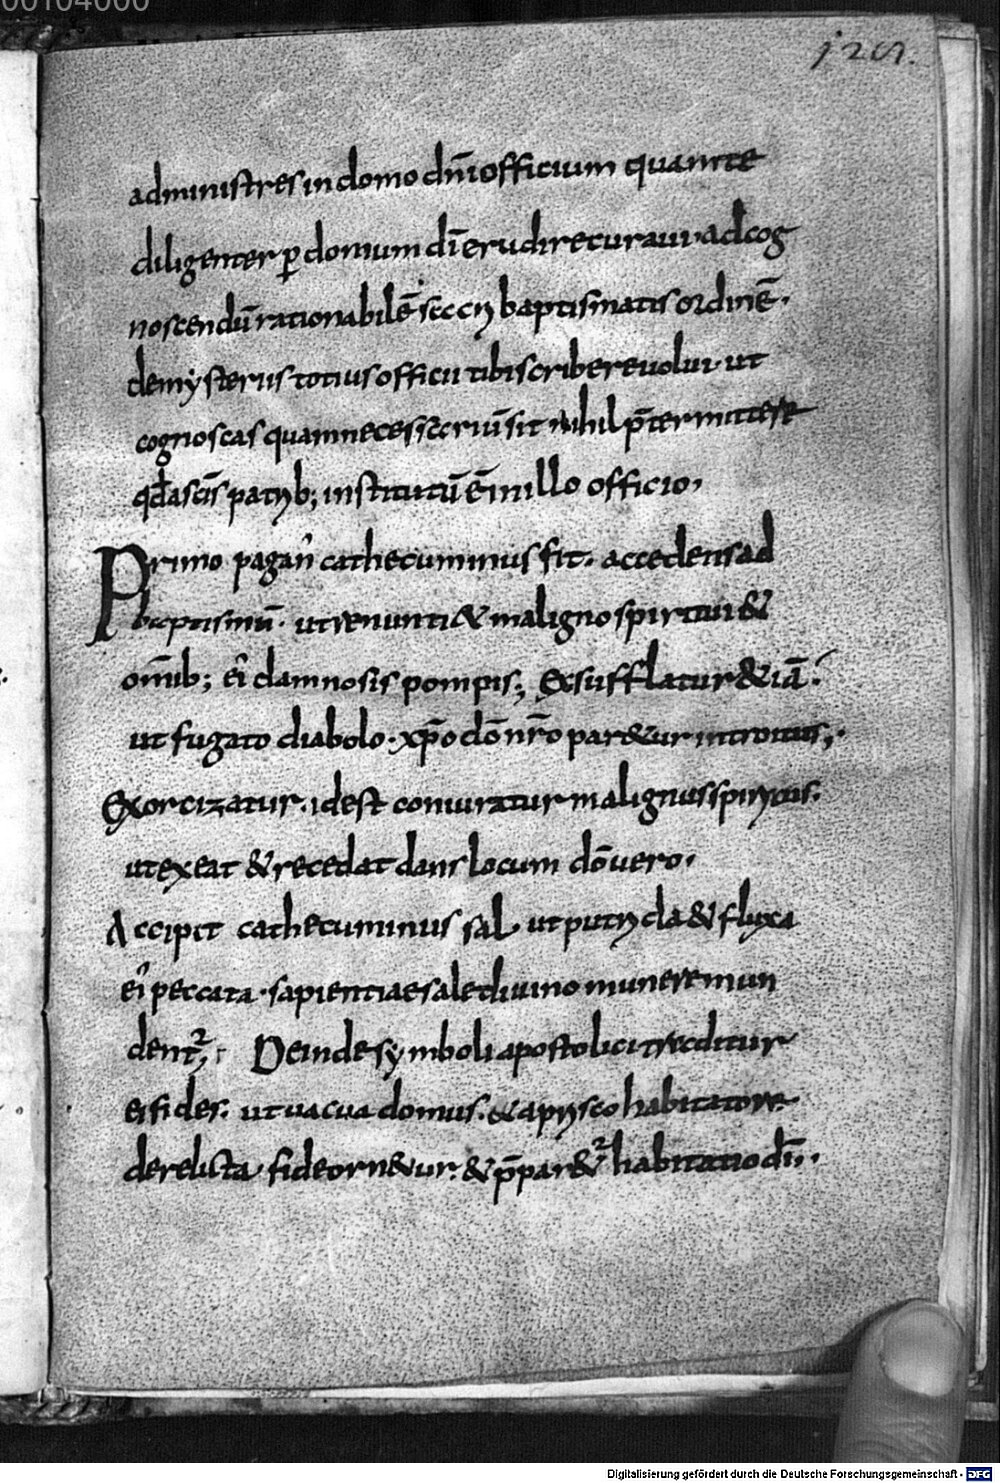 00104000
administres in domo dn̄i officium quam te
diligenter ꝑ domum dī erudire curaui · ad cog
noscendū rationabilē sccm baptismatis ordinē ·
de mẏsteriis totius officii tibi scribere uolui · ut
cognoscas quam necessariū sit nihil p̄termittere
qđ a scīs patrib; institutū ē in illo officio ·
Primo pagan᾽ cathecuminus fit · accedens ad
baptismū · ut renunti& maligno spiritui &
om̄ib; ei᾽ damnosis pompis; Exsufflatur & iā ·
ut fugato diabolo · xp̄o dō nr̄o par&ur introitus; ·
Exorcizatur · id est coniuratur malignus spiritus ·
ut exeat & recedat dans locum dō uero ·
Accipit cathecuminus sal · ut putrida & fluxa
ei᾽ peccata · sapientiae sale diuino munere mun
dent᾽; Deinde symboli apostolici traditur
ei fides · ut uacua domus · & a prisco habitatore
derelicta · fide orn&ur · & p̄par&᾽ habitatio dī ·
Digitalisierung gefördert durch die Deutsche Forschungsgemeinschaft - DFG